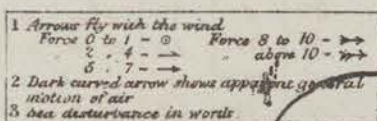 1 Arrows fly with the wind
Force 0 to 1 - Force 8 to 10 -
" 2 " 4 - " above 10 -
" 5 " 7 -
2 Dark curved arrow shows apparent general
motion of air
3 Sea disturbance in words.